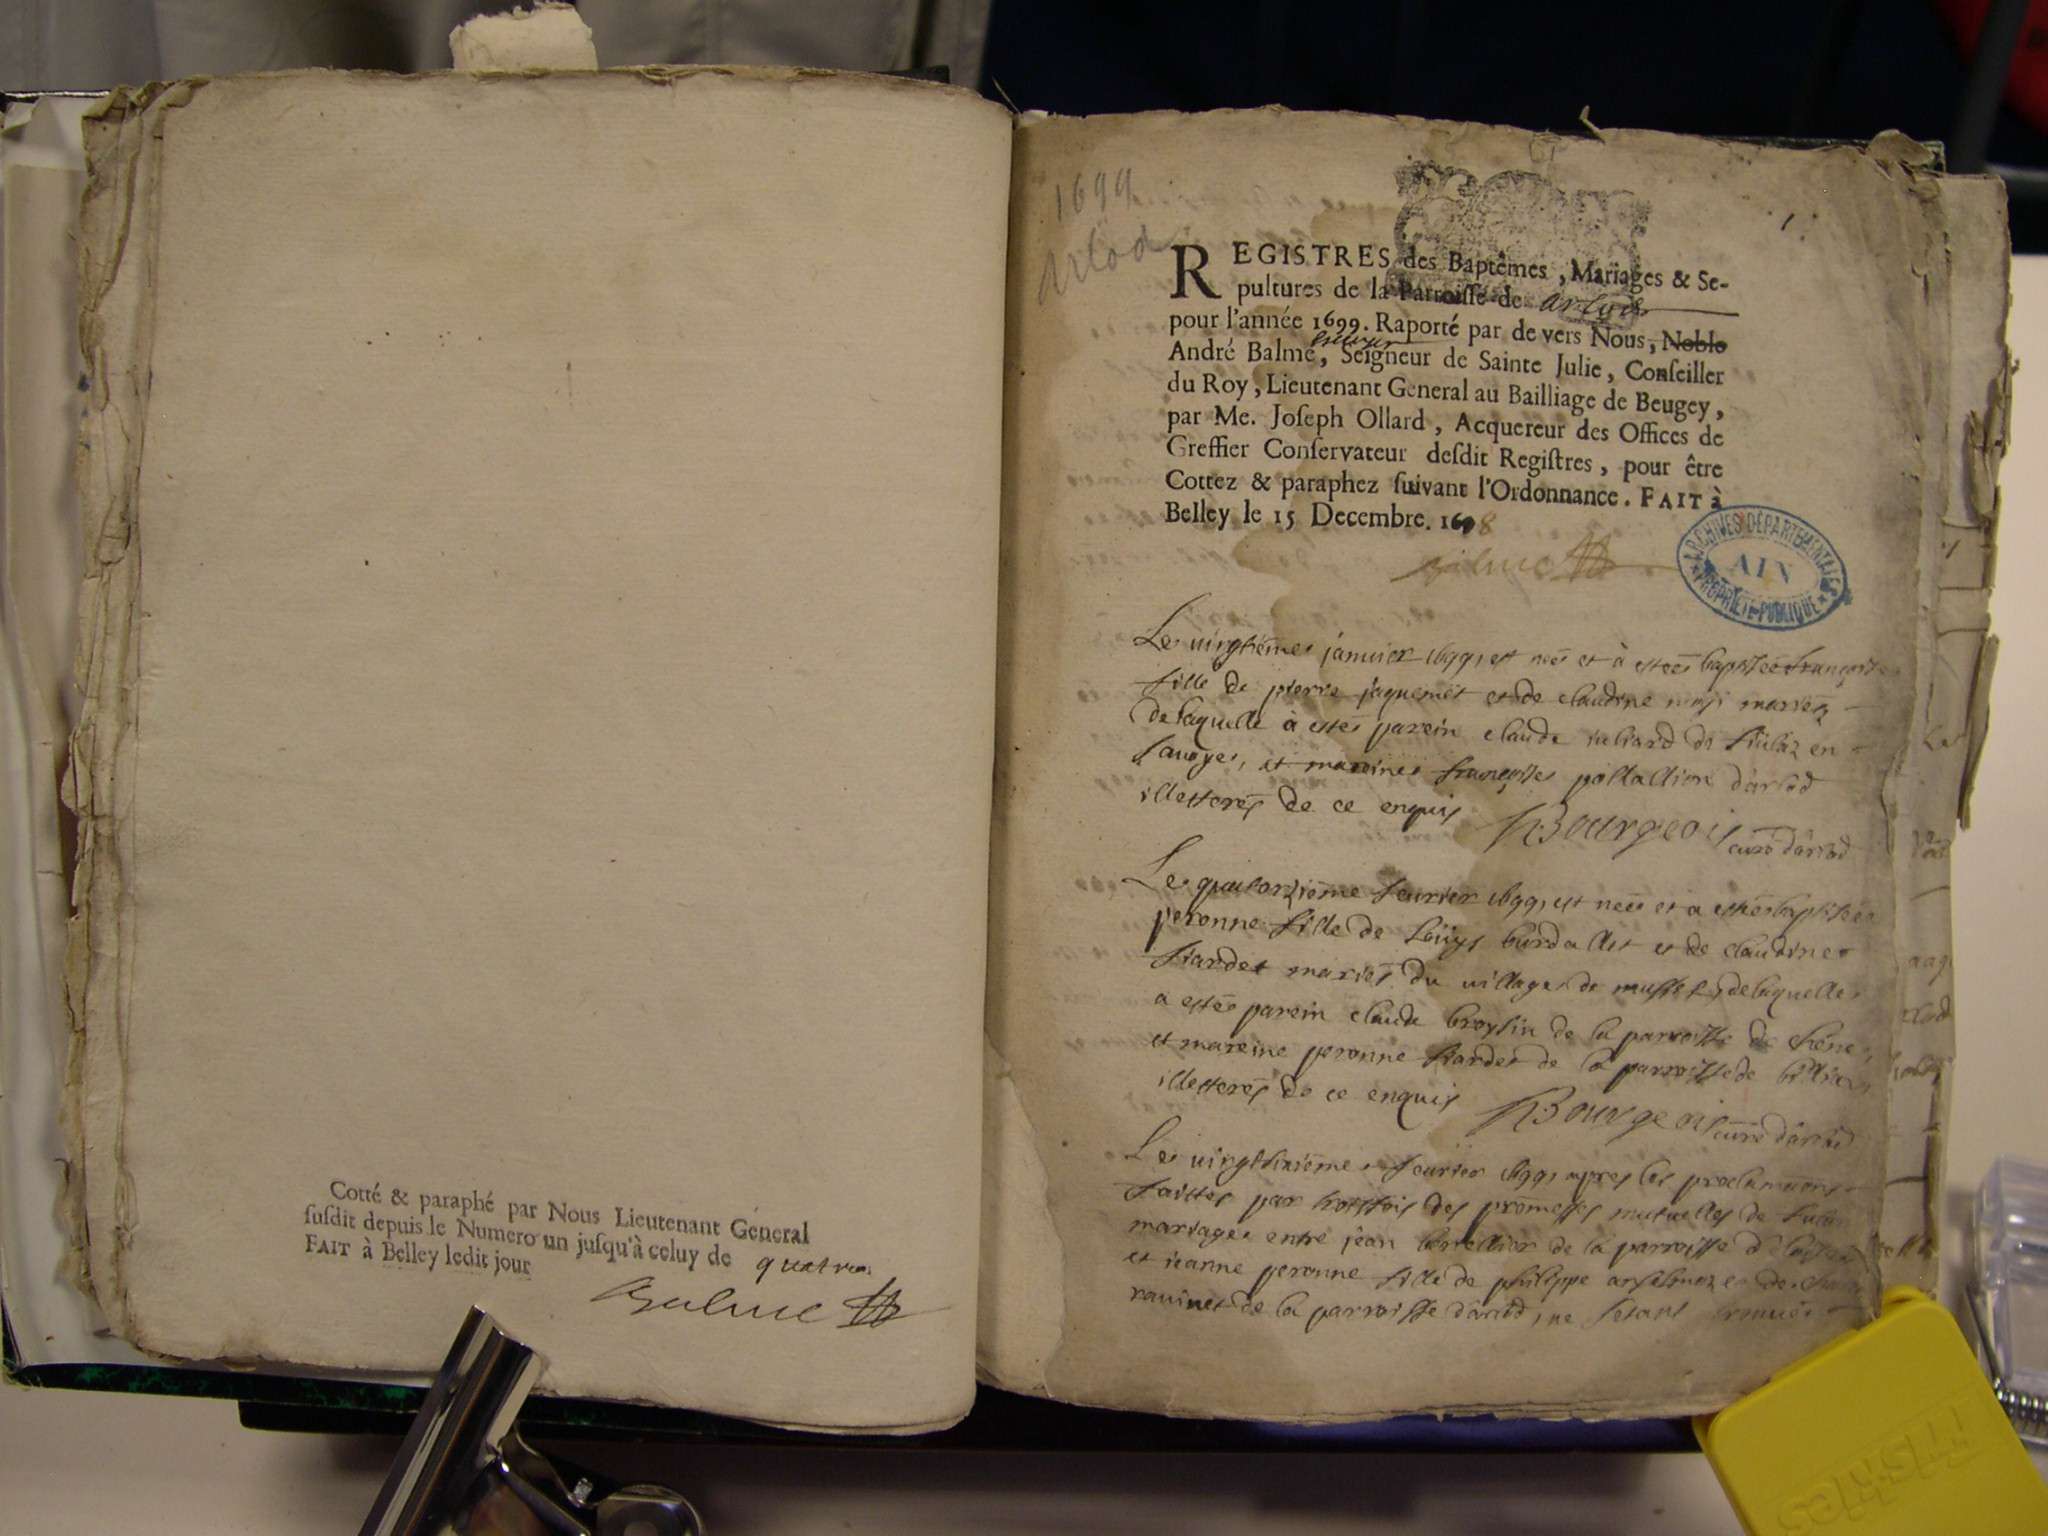 Cotté & paraphé par Nous Lieutenant Géneral
susdit depuis le Numero un jusqu'à celuy de quatre
FAIT à Belley ledit jour
Balme
1699
Arlod
1
REGISTRES des Baptêmes, Mariages & Se-
pultures de la Parroisse de Arlod
pour l'année 1699. Raporté par de vers Nous, Noble
André Balme, Seigneur de Sainte Julie, Conseiller
du Roy, Lieutenant General au Bailliage de Beugey,
par Me. Joseph Ollard, Acquereur des Offices de
Greffier Conservateur desdit Registres, pour être
Cottez & paraphez suivant l'Ordonnance. FAIT à
Belley le 15 Decembre. 1698
Balme
ARCHIVES DÉPARTEMENTALES
AIN
PROPRIÉTÉ PUBLIQUE
Le vingtiéme janvier 1699, est neé et à esteé baptizeé françoise
fille de pierre jaquemet et de claudine mariéz
de laquelle à esté parein claude de en
savoye, et mareine françoise d'arlod
illetteréz de ce enquis
Bourgeois curé d'arlod
Le quatorziéme fevrier 1699, est neeé et a esteé baptiseé
peronne fille de Loüys burdallet et de claudine
mariés du village de mussel, de laquelle
a esté parein claude de la parroisse de chene
et mareine peronne de la parroisse de
illetteréz de ce enquis
Bourgeois curé d'arlod
Le fevrier 1699, apres les proclamations
faittes par trois fois des promesses mutuelles de futur
mariage entre jean de la parroisse
et jeanne peronne fille de philippe de
de la parroisse d'arlod, ne s'etant trouvé
Friskies